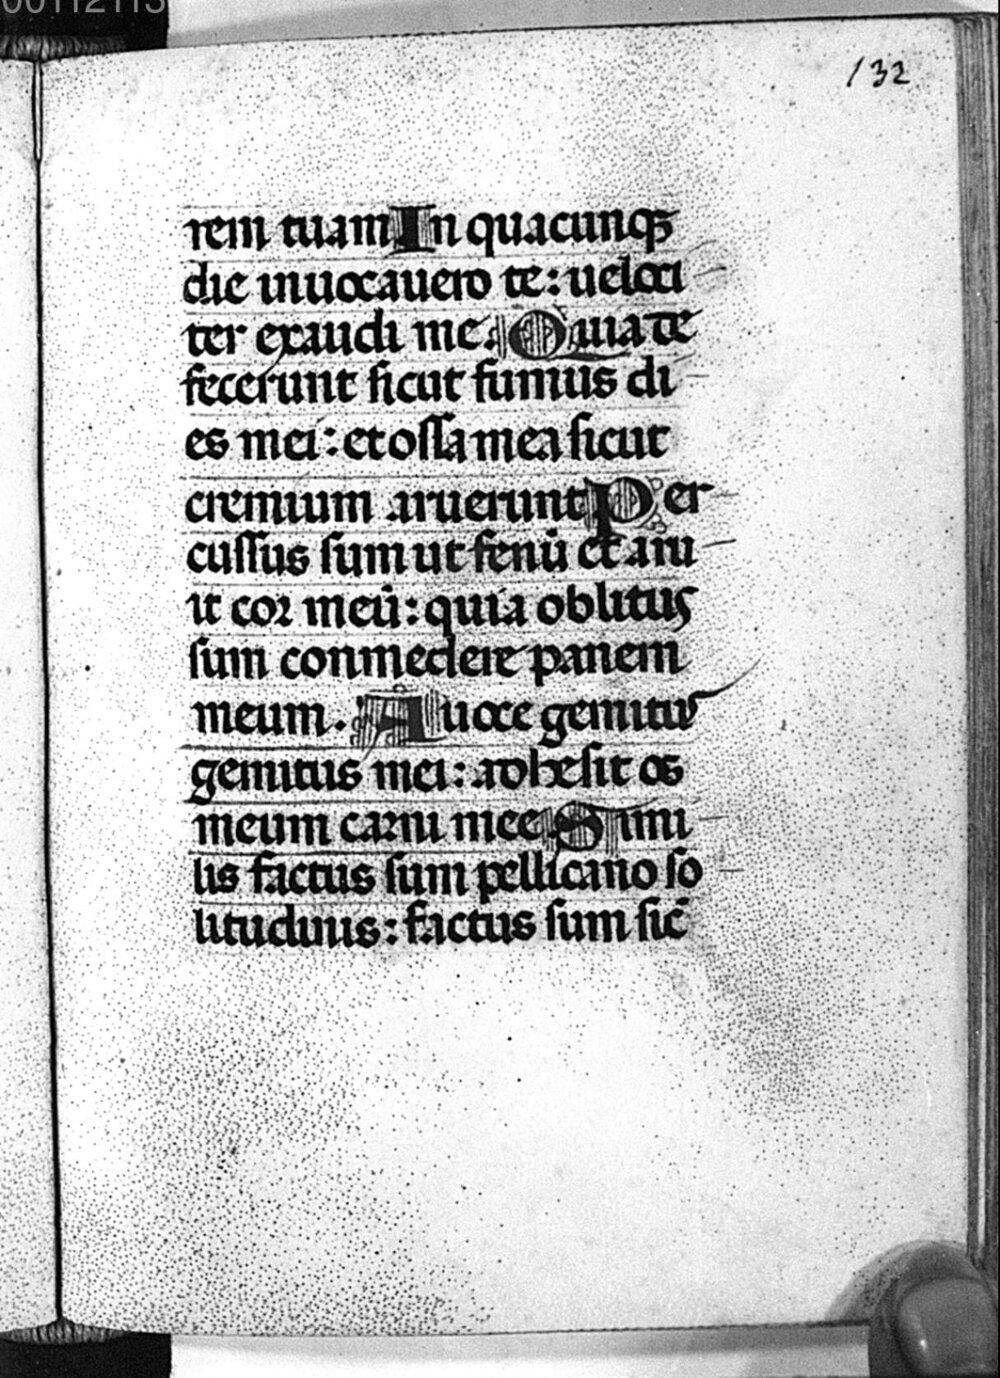 00112113
132
rem tuam In quacunqꝫ
die inuocauero te: ueloci
ter exaudi me. Quia de
fecerunt sicut fumus di
es mei: et ossa mea sicut
cremium aruerunt Per
cussus sum ut fenū et aru
it cor meū: quia oblitus
sum conmedere panem
meum. A uoce gemitus
gemitus mei: adhesit os
meum carni mee Simi
lis factus sum pellicano so
litudinis: factus sum sic̄